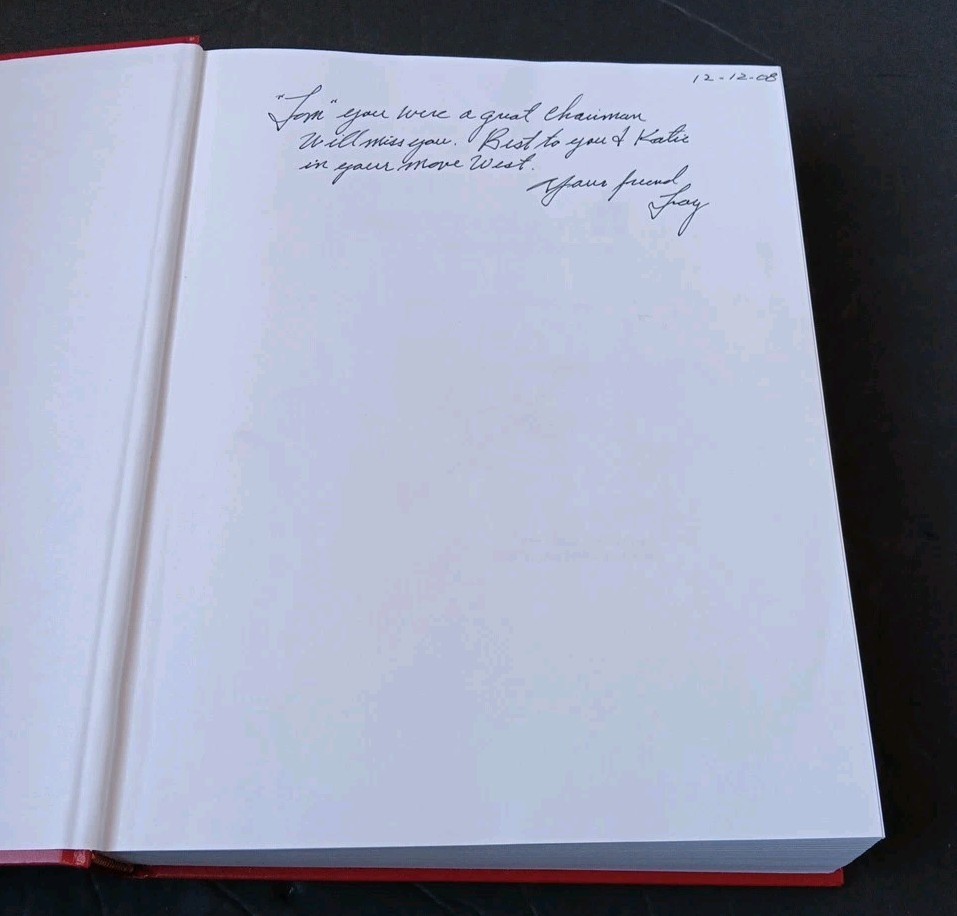 12-12-08
"Tom" you were a great Chairman
Will miss you. Best to you & Katie
in your move West.
Your friend